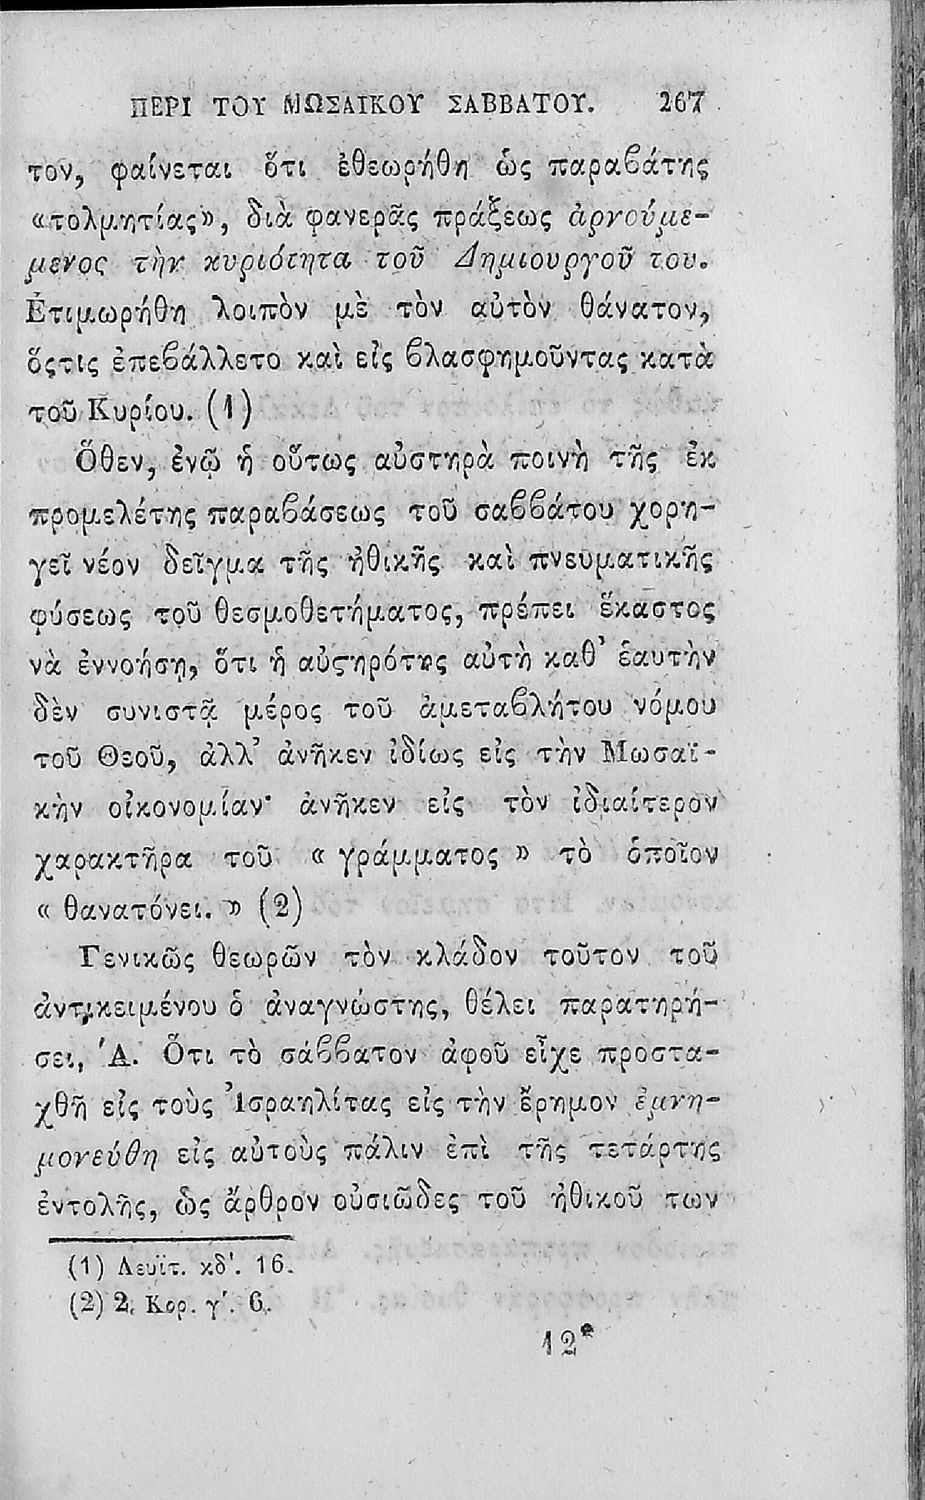 ΠΕΡΙ ΤΟΥ ΜΩΣΑΙΚΟΥ ΣΑΒΒΑΤΟΥ. 267
τον, φαίνεται ὅτι ἐθεωρήθη ὡς παραβάτης
«τολμητίας», διὰ φανερᾶς πράξεως ἀρνούμε-
μενος τὴν κυριότητα τοῦ Δημιουργοῦ του.
Ἐτιμωρήθη λοιπὸν μὲ τὸν αὐτὸν θάνατον,
ὅςτις ἐπεβάλλετο καὶ εἰς βλασφημοῦντας κατὰ
τοῦ Κυρίου. (1)
Ὅθεν, ἐνῷ ἡ οὕτως αὐστηρὰ ποινὴ τῆς ἐκ
προμελέτης παραβάσεως τοῦ σαββάτου χορη-
γεῖ νέον δεῖγμα τῆς ἠθικῆς καὶ πνευματικῆς
φύσεως τοῦ θεσμοθετήματος, πρέπει ἕκαστος
νὰ ἐννοήσῃ, ὅτι ἡ αὐϛηρότης αὐτὴ καθ’ ἑαυτὴν
δὲν συνιστᾷ μέρος τοῦ ἀμεταβλήτου νόμου
τοῦ Θεοῦ, ἀλλ’ ἀνῆκεν ἰδίως εἰς τὴν Μωσαϊ-
κὴν οἰκονομίαν· ἀνῆκεν εἰς τὸν ἰδιαίτερον
χαρακτῆρα τοῦ « γράμματος » τὸ ὁποῖον
« θανατόνει. » (2)
Γενικῶς θεωρῶν τὸν κλάδον τοῦτον τοῦ
ἀντικειμένου ὁ ἀναγνώστης, θέλει παρατηρή-
σει, Ἀ. Ὅτι τὸ σάββατον ἀφοῦ εἶχε προστα-
χθῆ εἰς τοὺς Ἰσραηλίτας εἰς τὴν ἔρημον ἐμνη-
μονεύθη εἰς αὐτοὺς πάλιν ἐπὶ τῆς τετάρτης
ἐντολῆς, ὡς ἄρθρον οὐσιῶδες τοῦ ἠθικοῦ των
(1) Λευϊτ. κδ'. 16.
(2) 2. Κορ. γ'. 6.
12*